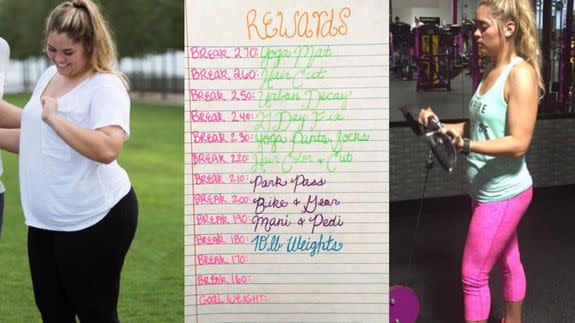 REWARDS
BREAK 270: Yoga Mat
BREAK 260: Hair Cut
BREAK 250: Urban Decay
BREAK 240: 21 Day Fix
BREAK 230: Yoga Pants, Socks
BREAK 220: Hair Color & Cut
BREAK 210: Park Pass
BREAK 200: Bike & Gear
BREAK 190: Mani & Pedi
BREAK 180: 10 lb Weights
BREAK 170:
BREAK 160:
GOAL WEIGHT: